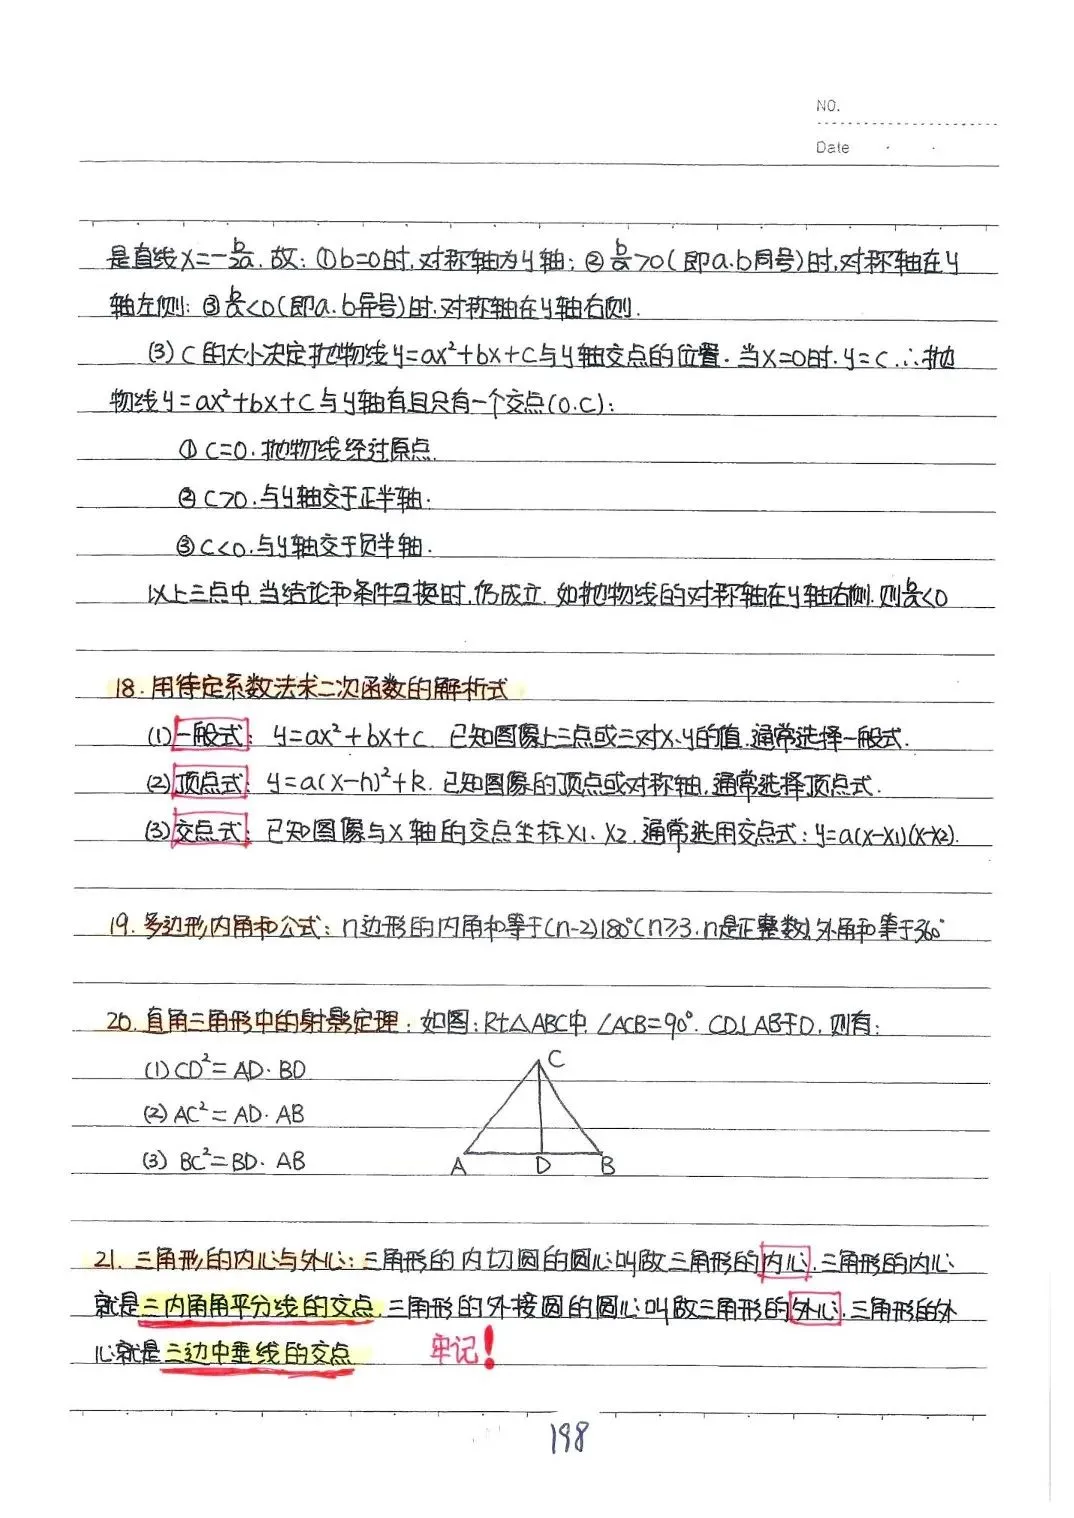 NO.
Date
是直线x=-b/2a.故:①b=0时,对称轴为y轴;②b/a>0(即a.b同号)时,对称轴在y
轴左侧;③b/a<0(即a.b异号)时,对称轴在y轴右侧.
(3)C的大小决定抛物线y=ax²+bx+c与y轴交点的位置.当x=0时.y=c.∴抛
物线y=ax²+bx+c与y轴有且只有一个交点(0.c):
①c=0.抛物线经过原点.
②c>0.与y轴交于正半轴;
③c<0.与y轴交于负半轴.
以上三点中,当结论和条件互换时,仍成立.如抛物线的对称轴在y轴右侧.则b/a<0
18.用待定系数法求二次函数的解析式
(1)一般式:y=ax²+bx+c.已知图像上三点或三对x、y的值.通常选择一般式.
(2)顶点式:y=a(x-h)²+k.已知图像的顶点或对称轴,通常选择顶点式.
(3)交点式:已知图像与x轴的交点坐标x1、x2.通常选用交点式:y=a(x-x1)(x-x2).
19.多边形内角和公式:n边形的内角和等于(n-2)180°(n≥3.n是正整数),外角和等于360°
20.直角三角形中的射影定理:如图:Rt△ABC中,∠ACB=90°.CD⊥AB于D,则有:
(1)CD²=AD·BD
(2)AC²=AD·AB
(3)BC²=BD·AB
C
A D B
21.三角形的内心与外心:三角形的内切圆的圆心叫做三角形的内心.三角形的内心
就是三内角角平分线的交点.三角形的外接圆的圆心叫做三角形的外心.三角形的外
心就是三边中垂线的交点
牢记!
198